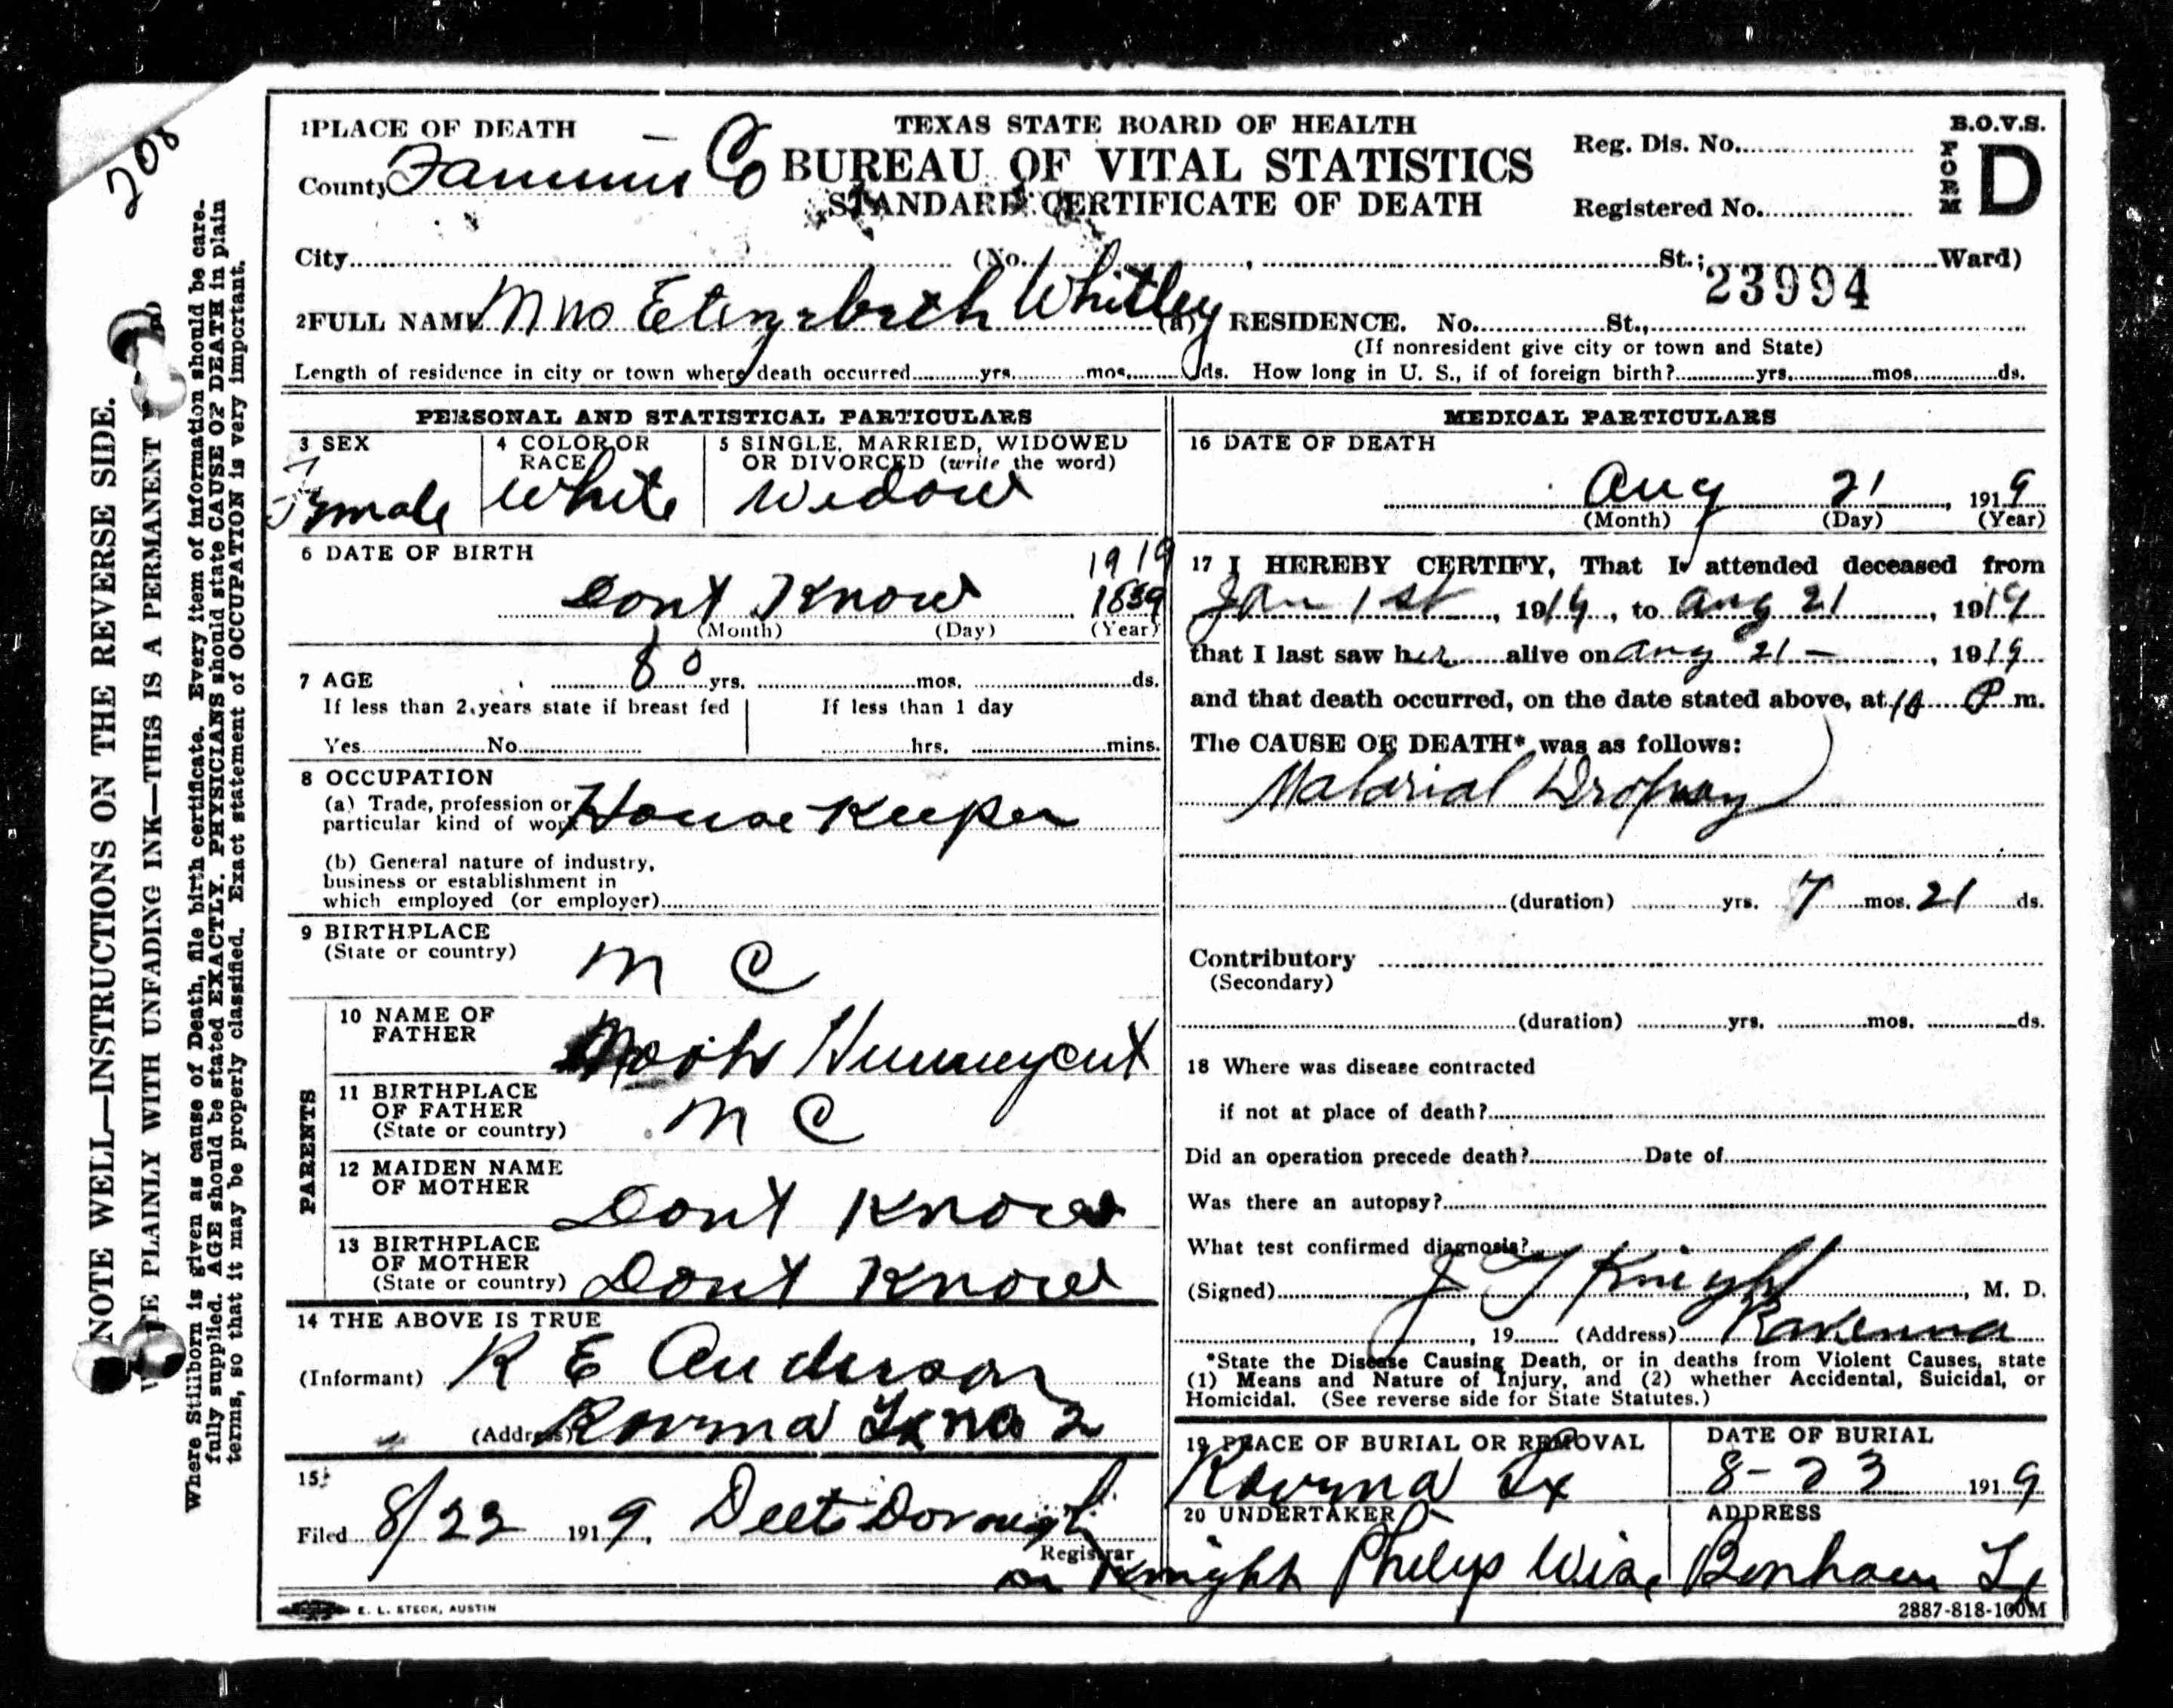 208
NOTE WELL—INSTRUCTIONS ON THE REVERSE SIDE.
PLAINLY WITH UNFADING INK—THIS IS A PERMANENT
Where Stillborn is given as cause of Death, file birth certificate. Every item of information should be care-
fully supplied. AGE should be stated EXACTLY. PHYSICIANS should state CAUSE OF DEATH in plain
terms, so that it may be properly classified. Exact statement of OCCUPATION is very important.
1 PLACE OF DEATH
County Fannin Co
TEXAS STATE BOARD OF HEALTH
BUREAU OF VITAL STATISTICS
STANDARD CERTIFICATE OF DEATH
Reg. Dis. No.
Registered No.
B.O.V.S.
FORM D
City (No. , St.; Ward)
23994
2 FULL NAME Mrs Whitley (a) RESIDENCE. No. St.,
(If nonresident give city or town and State)
Length of residence in city or town where death occurred yrs. mos. ds. How long in U. S., if of foreign birth? yrs. mos. ds.
PERSONAL AND STATISTICAL PARTICULARS
3 SEX
Female
4 COLOR OR RACE
White
5 SINGLE, MARRIED, WIDOWED
OR DIVORCED (write the word)
Widow
6 DATE OF BIRTH
1919
Dont Know 1839
(Month) (Day) (Year)
7 AGE 80 yrs. mos. ds.
If less than 2 years state if breast fed If less than 1 day
Yes No hrs. mins.
8 OCCUPATION
(a) Trade, profession or
particular kind of work House Keeper
(b) General nature of industry,
business or establishment in
which employed (or employer)
9 BIRTHPLACE
(State or country) N C
PARENTS
10 NAME OF
FATHER Hunnycut
11 BIRTHPLACE
OF FATHER
(State or country) N C
12 MAIDEN NAME
OF MOTHER Dont Know
13 BIRTHPLACE
OF MOTHER
(State or country) Dont Know
14 THE ABOVE IS TRUE
(Informant) R E Anderson
(Address) Ravenna Tx No 2
15
Filed 8/22 1919, Dorough
Registrar
MEDICAL PARTICULARS
16 DATE OF DEATH
Aug 21, 1919
(Month) (Day) (Year)
17 I HEREBY CERTIFY, That I attended deceased from
Jan 1st, 1919, to Aug 21, 1919
that I last saw her alive on Aug 21 —, 1919
and that death occurred, on the date stated above, at 10 P m.
The CAUSE OF DEATH* was as follows:
Malarial Dropsy
(duration) yrs. 7 mos. 21 ds.
Contributory
(Secondary)
(duration) yrs. mos. ds.
18 Where was disease contracted
if not at place of death?
Did an operation precede death? Date of
Was there an autopsy?
What test confirmed diagnosis?
(Signed) J T Knight, M. D.
, 19 (Address) Ravenna
*State the Disease Causing Death, or in deaths from Violent Causes, state
(1) Means and Nature of Injury, and (2) whether Accidental, Suicidal, or
Homicidal. (See reverse side for State Statutes.)
19 PLACE OF BURIAL OR REMOVAL
Ravenna Tx
DATE OF BURIAL
8-23 1919
20 UNDERTAKER
Knight Philips Wise
ADDRESS
Bonham Tx
E. L. STECK, AUSTIN
2887-818-100M